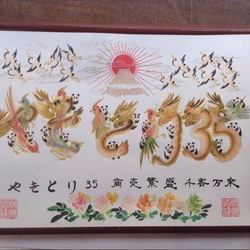 やきとり35
やきとり 35 商売繁盛 千客万来